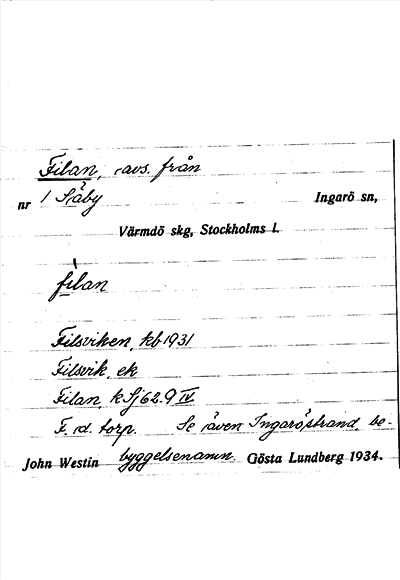 Filan, avs. från
nr 1 Säby Ingarö sn,
Värmdö skg, Stockholms l.
fìlan
Filsviken, kb 1931
Filsvik, ek
Filan, k Sj 62.9 IV
F. d. torp. Se även Ingaröstrand, be-
John Westin byggelsenamn. Gösta Lundberg 1934.